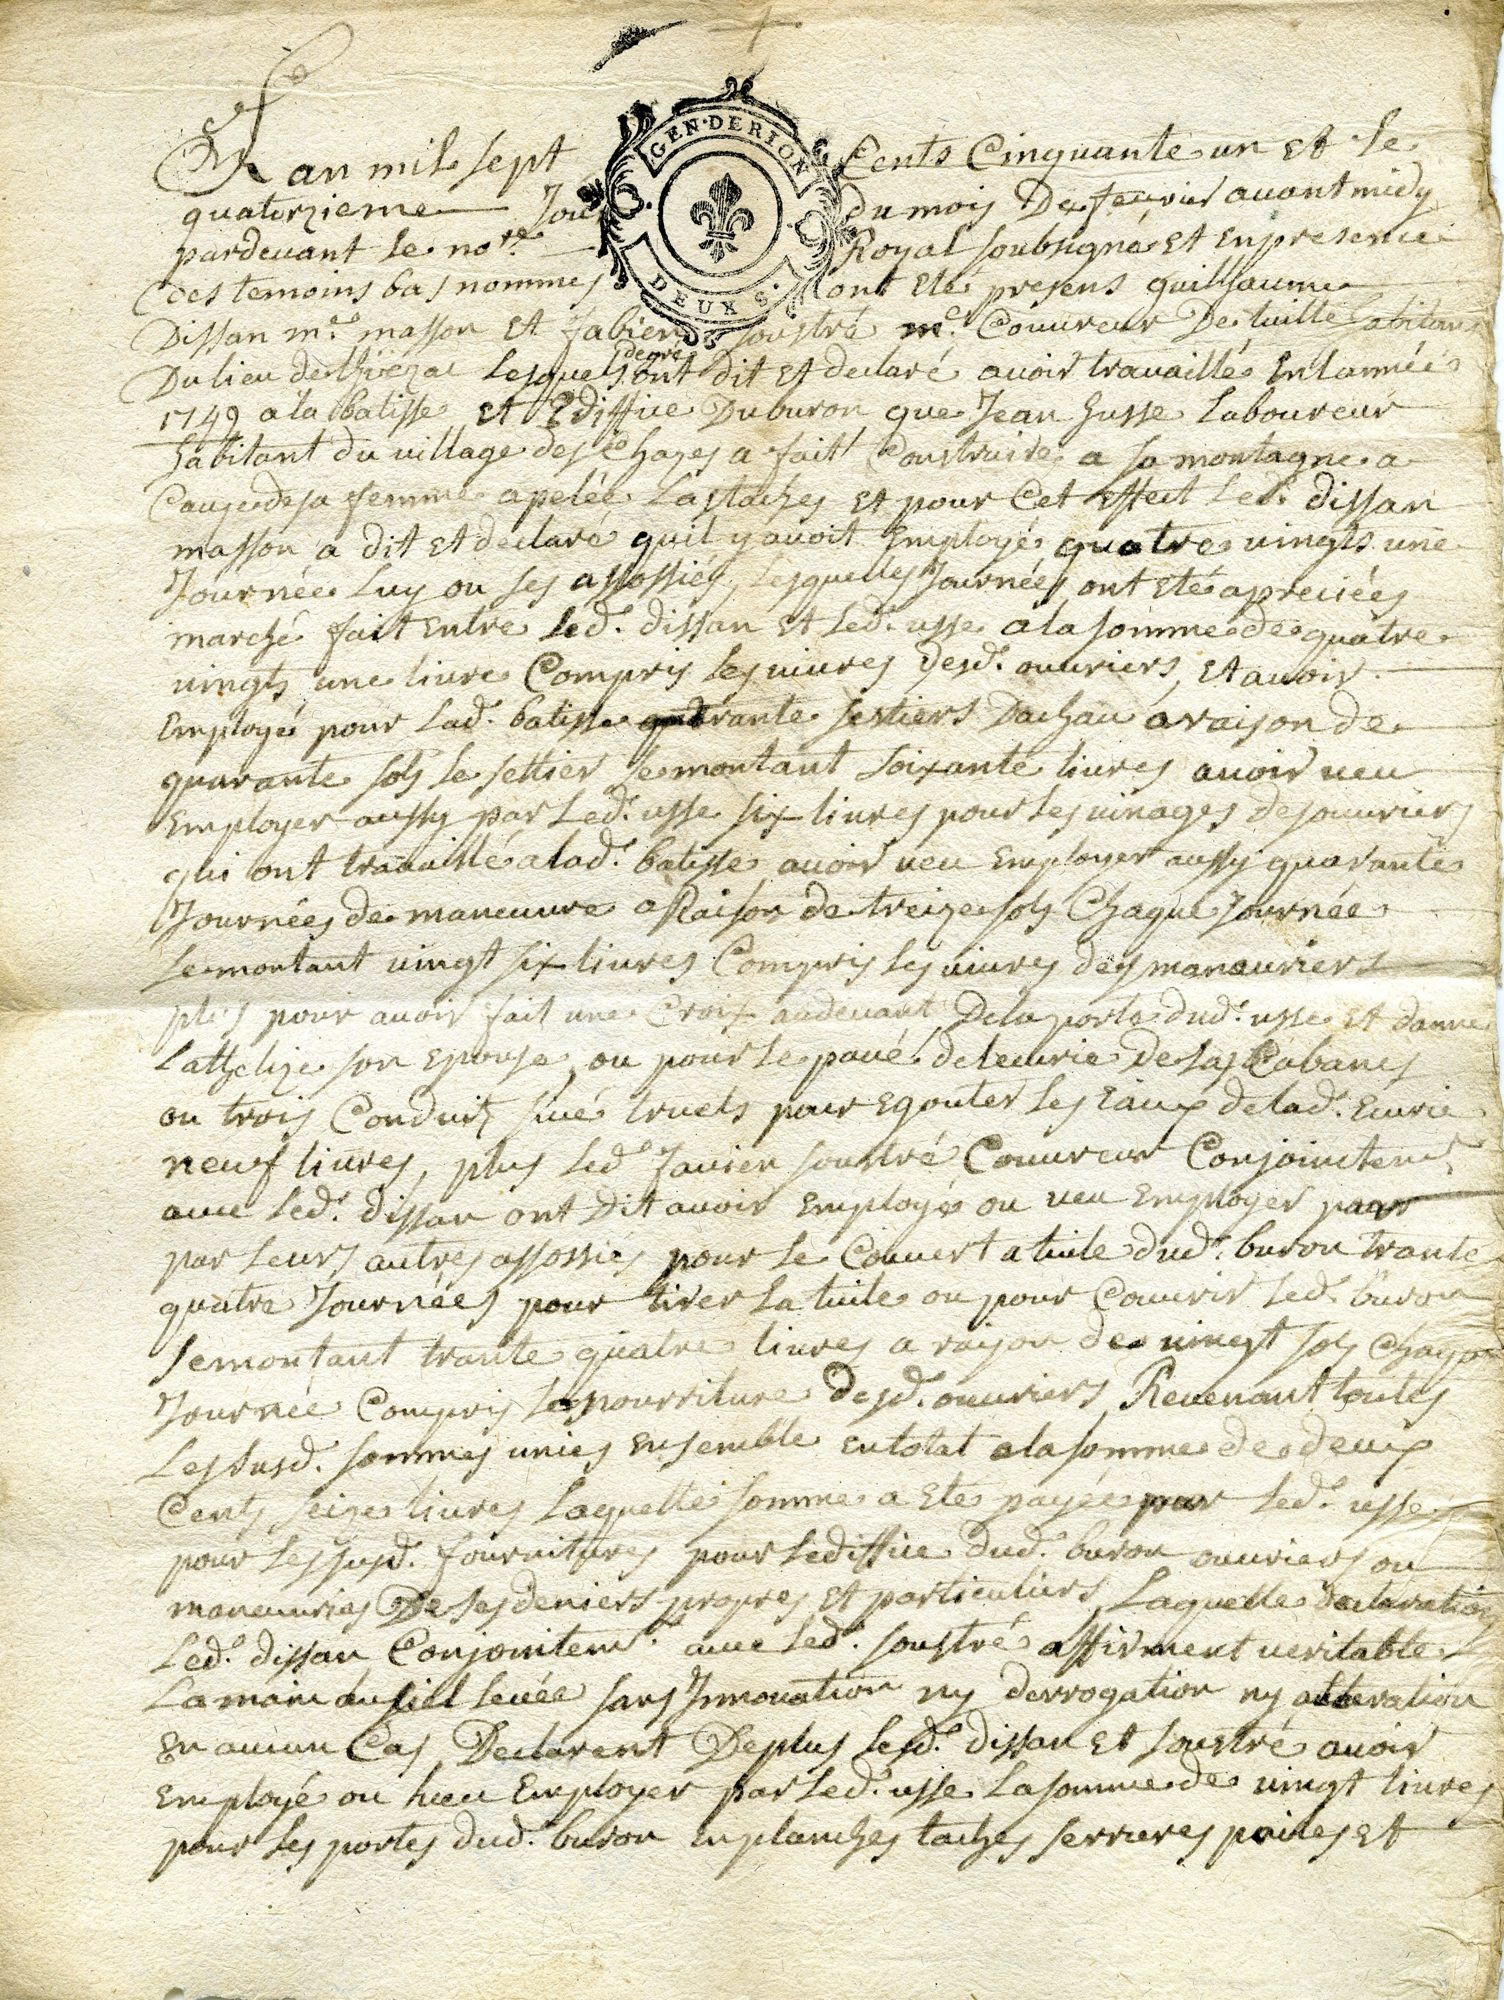 GEN. DE RION
DEUX S.
Lan mil sept Cents Cinquante un et le
quatorzieme Jour du mois De feuvrier avant midy
pardevant le no.re Royal soubsigné et en presence
des temoins bas nommes ont eté presens guilhaume
Dissan m.e masson et fabien soustré m.e Couvreur De tuille habitans
Du lieu de thiezac Lesquels degré ont dit et declaré avoir travaillé En lannée
1749 a la batisse et Ediffice Du buron que Jean husse Laboureur
habitant du village des Chazes a fait Construire a sa montagne a
Cause de sa femme apelée Lastaches et pour Cet effect led. dissan
masson a dit et declaré quil y avoit Employé quatre vingts une
Journée Luy ou ses assossiés, Lesquelles Journées ont eté apreciées
marché fait entre Led. dissan et Led. usse a la somme de quatre
vingts une livre Compris les vivres desd. ouvriers, et avoir
Employé pour Lad. batisse quarante sestiers Dachau a raison de
quarante sols le settier se montant soixante livres avoir veu
Employer aussy par Led. usse six livres pour les vinages des ouvriers
qui ont travaillé a lad. batisse avoir veu Employer aussy quarante
Journées de maneuvre a Raison de treize sols Chaque Journée
se montant vingt six livres Compris les vivres des manouvriers
plus pour avoir fait une Croix audevant De la porte dud. usse et danne
son epouse, ou pour le pavé de lecurie De las Cabanes
ou trois Conduits sivé truels pour egouter les Eaux de lad. Ecurie
neuf livres, plus Led. soustré Couvreur Conjointem.t
avec Led. dissan ont Dit avoir Employé ou veu Employer paar
par leurs autres assossiés pour le Couvert a tuile dud. buron trante
quatre Journées pour tirer la tuile ou pour Couvrir Led. buron
se montant trante quatre livres a raison de vingt sols Chaque
Journée Compris la nourriture desd. ouvriers, Revenant toutes
Les susd. sommes unies ensemble en total a la somme de deux
Cents seize livres Laquelle somme a eté payée par Led. usse
pour les susd. fournitures pour lediffice dud. buron ouvriers ou
maneuvries De ses deniers propres et particuliers, Laquelle declaration
Led. dissan Conjointem.t avec Led. soustré affirment veritable
La main au siel levée sans Innovation ny derrogation ny alteration
En aucun Cas, Declarent De plus Lesd. dissan et soustré avoir
Employé ou heu Employer par Led. usse La somme de vingt livres
pour les portes dud. buron en planches taches serrures et